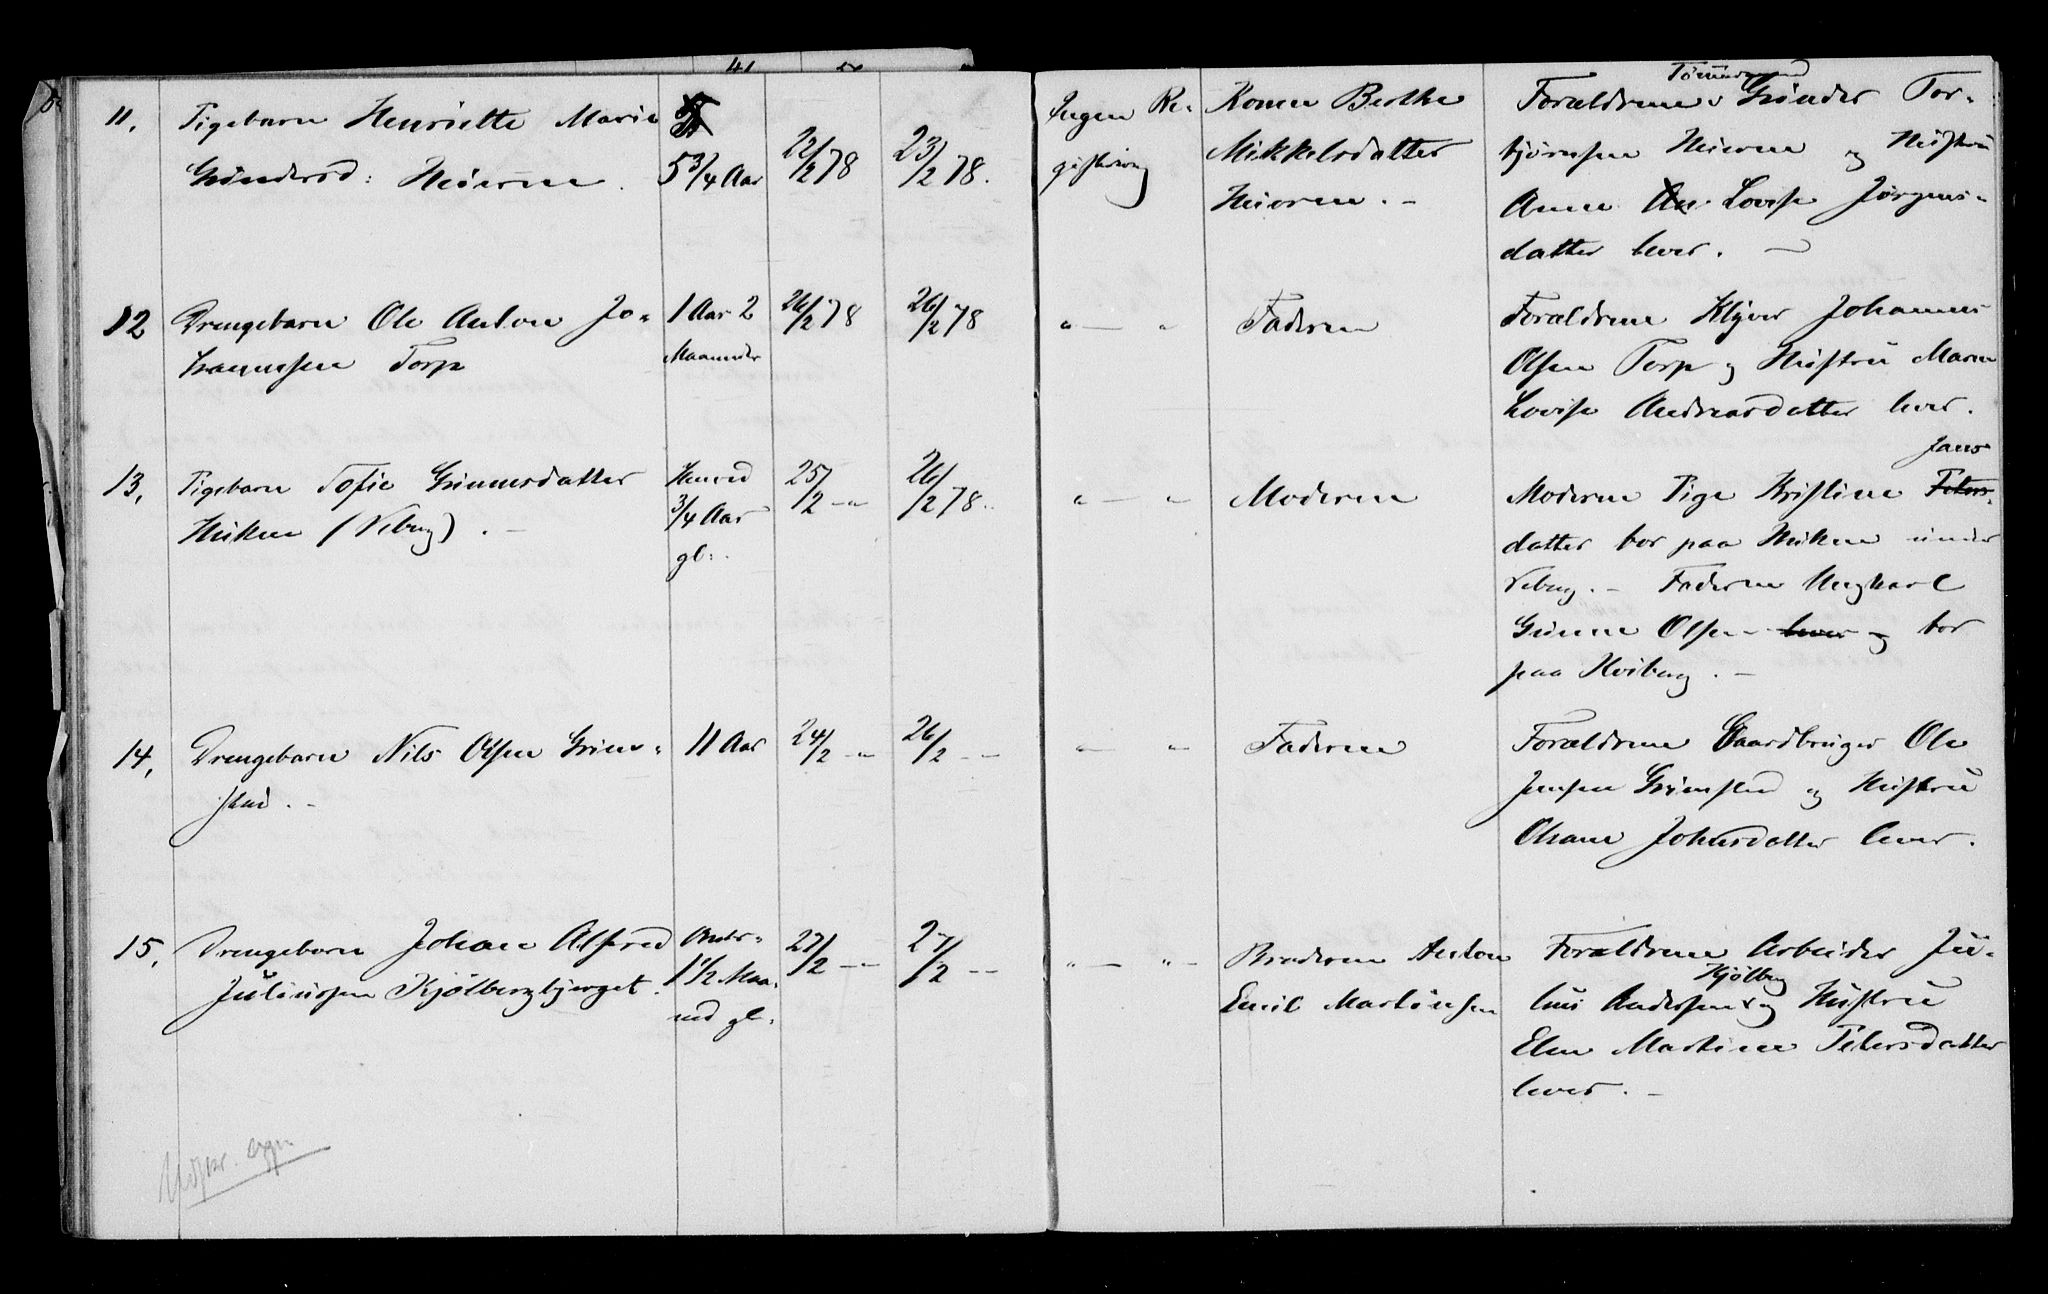 11. Pigebarn Henriette Marie
Gundersd: Heieren.
5 3/4 Aar
22/2 78
23/2 78.
Ingen Re-
gistrering
Konen Berthe
Mikkelsdatter
Heieren. -
Tømmermand
Forældrene Gunder Tor-
bjørnsen Heieren og Hustru
Anne Lovise Jørgens-
datter lever. -
12 Drengebarn Ole Anton Jo-
hannesen Torp
1 Aar 2
Maaneder
26/2 78
26/2 78
" — "
Faderen
Forældrene Johannes
Olsen Torp og Hustru Maren
Lovise Andreasdatter lever.
13, Pigebarn Sofie Gunnersdatter
Heiken (Neberg). -
Henved
3/4 Aar
gl:.
25/2 - "
26/2 78.
" — "
Moderen
Jans
Moderen Pige Kristine Peters-
datter bor paa Heiken under
Neberg. - Faderen Ungkarl
Gunne Olsen - lever og bor
paa Hviberg. -
14, Drengebarn Nils Olsen Grim-
stad. -
11 Aar
24/2 - "
26/2 - -
" "
Faderen
Forældrene Gaardbruger Ole
Jensen Grimstad og Hustru
Johnsdatter lever.
15, Drengebarn Johan Alfred
Juliussen Kjølbergbjerget.
Omtr-
1 1/2 Maa-
ned gl.
27/2 - "
27/2 - -
" — " -
Broderen Anton
Emil Martinsen
Forældrene Arbeider Ju-
Kjølberg
lius Andersen og Hustru
Elen Martine Petersdatter
lever. -